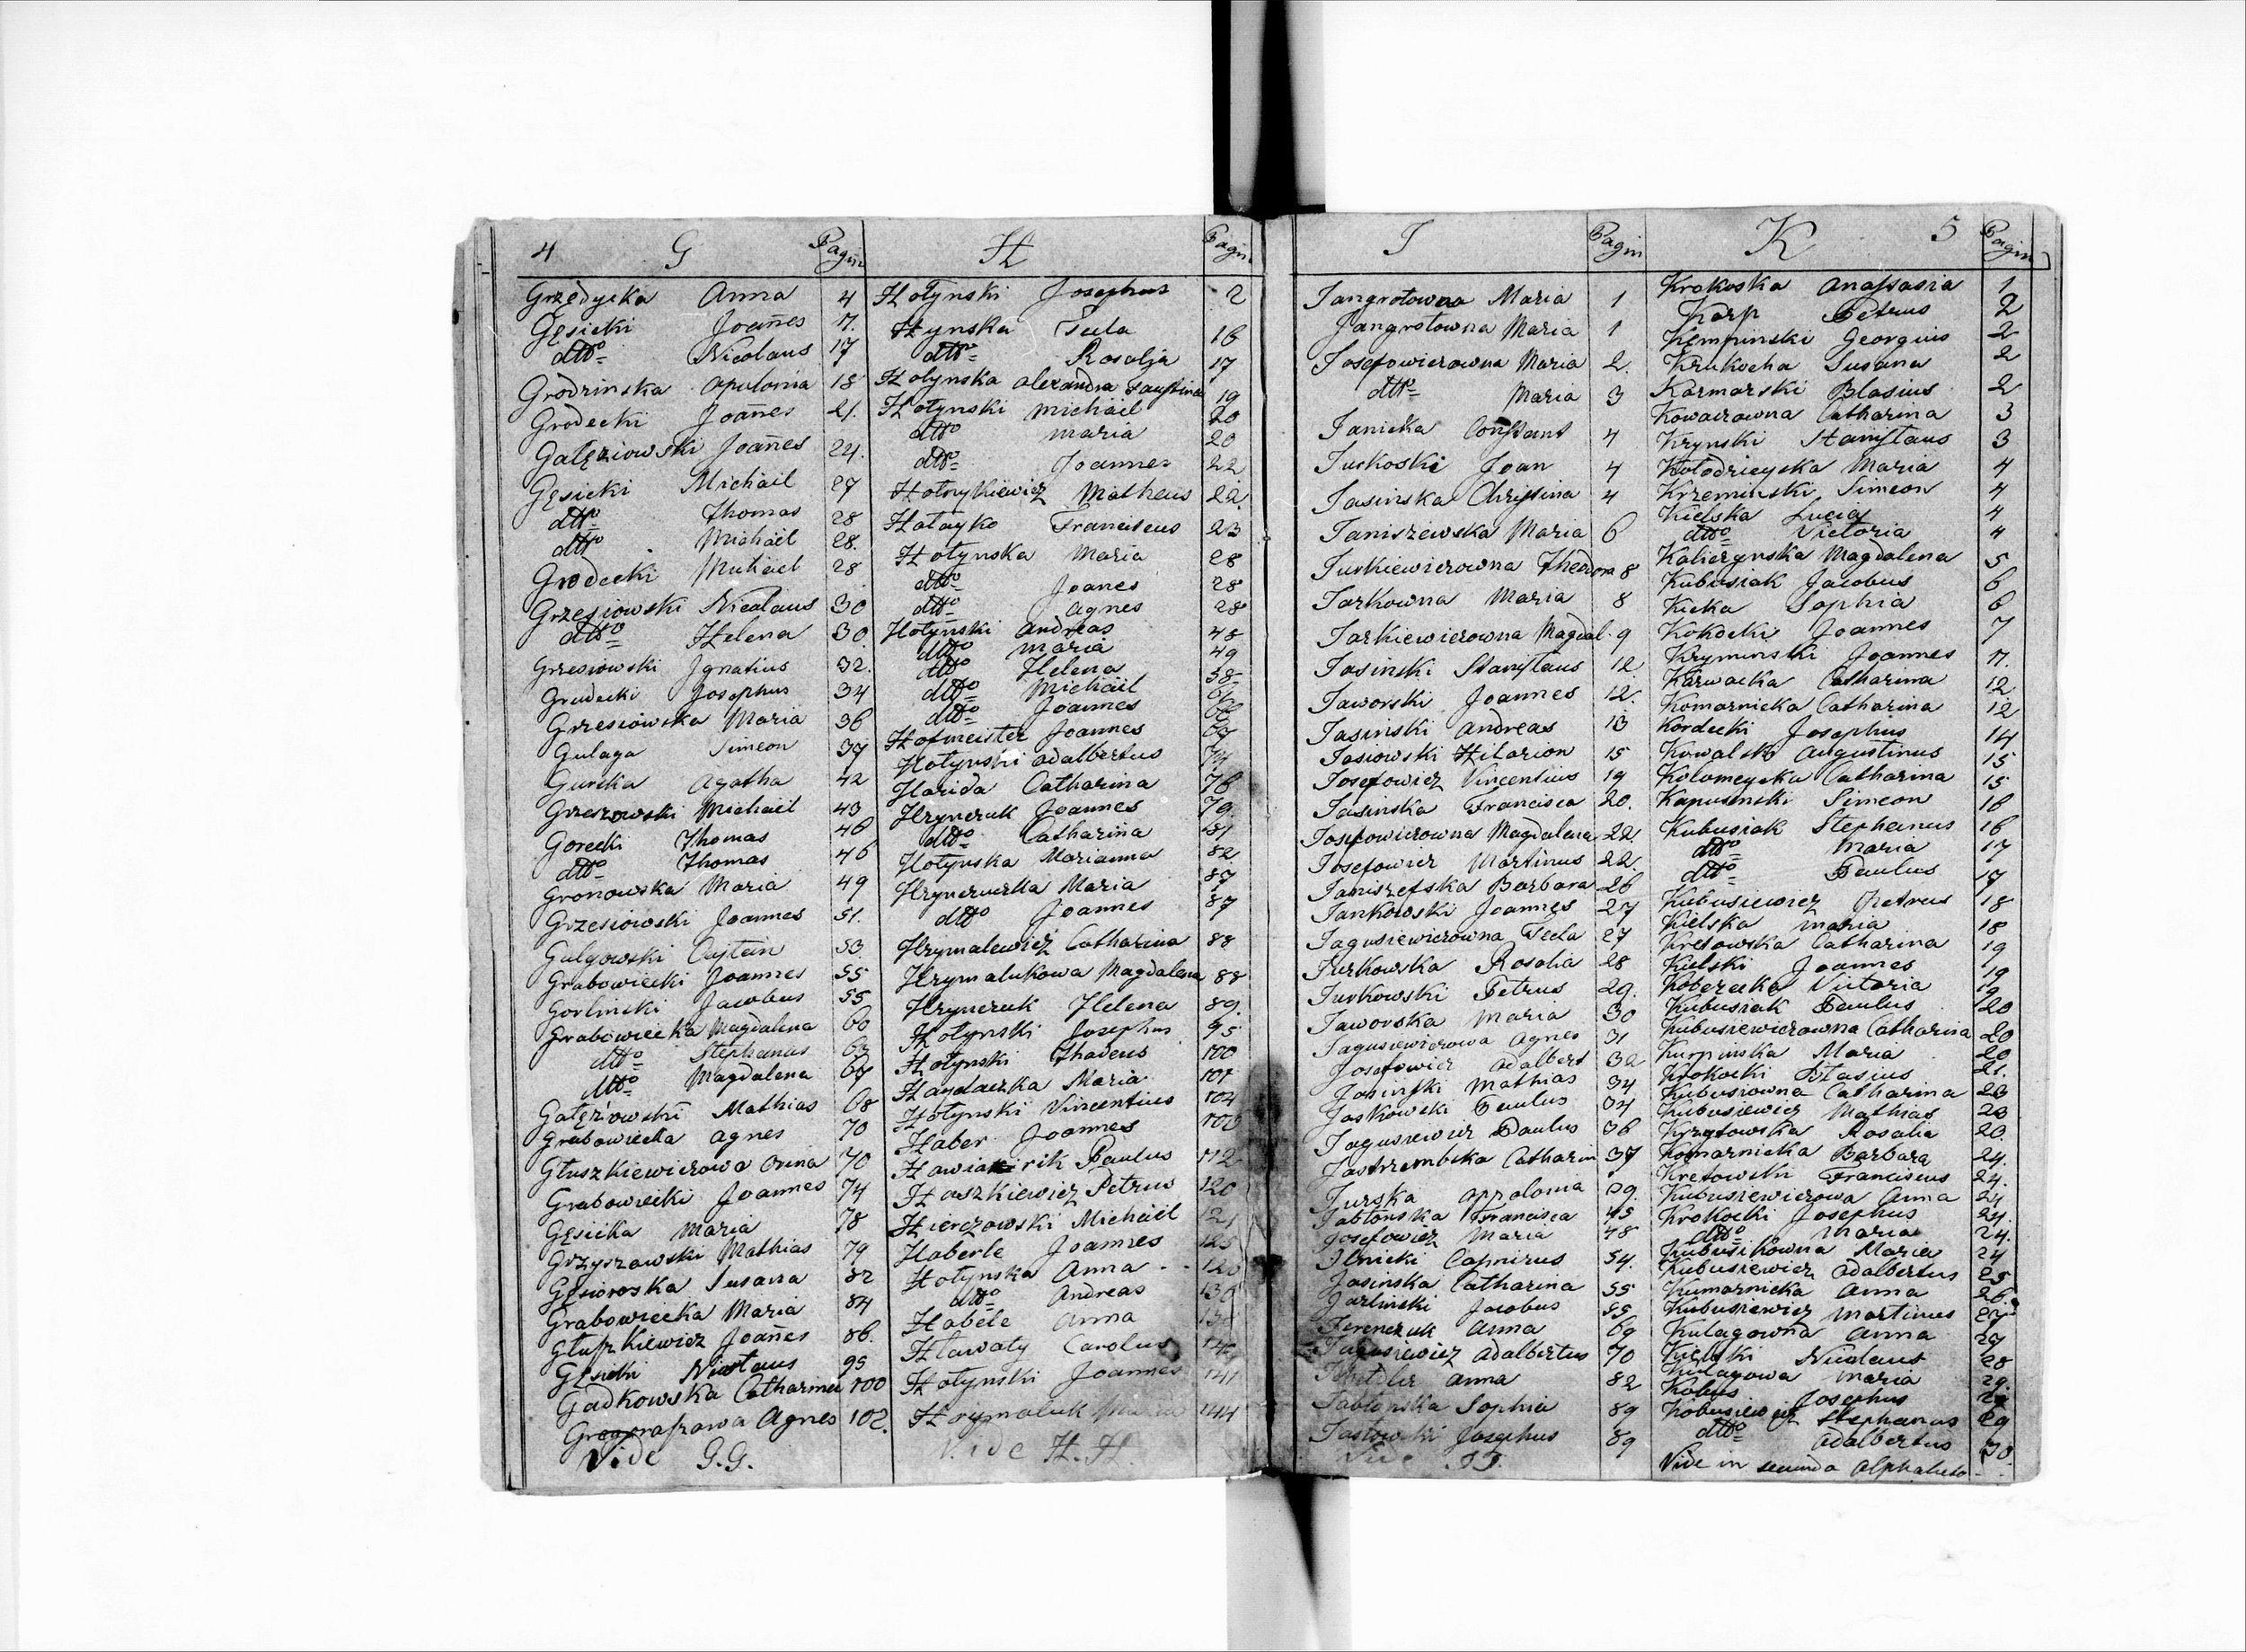 4 G Pagin
Grzędycka Anna 4
Gęsicki Joannes 7.
dtto Nicolaus 17
Grodzinska Apulonia 18
Grodecki Joannes 21.
Gałęziowski Joannes 24.
Gęsicki Michàil 27
dtto Thomas 28
dtto Michàel 28.
Grodecki Michael 28
Grzesiowski Nicolaus 30
dtto Helena 30
Grzesiowski Jgnatius 32.
Grudecki Josephus 34
Grzesiowska Maria 36
Gulaga Simeon 37
Gurska Agatha 42
Grzeszowski Michàil 43
Gorecki Thomas 46
dtto Thomas 46
Gronowska Maria 49
Grzesiowski Joannes 51.
Gulgowski 53.
Grabowiecki Joannes 55
Gorlinski Jacobus 55
Grabowiecka Magdalena 60
dtto Stephanus 63
dtto Magdalena 67
Gałęziowski Mathias 68
Grabowiecka Agnes 70
Głuszkiewiczowa Anna 70
Grabowiecki Joannes 74
Gęsicka Maria 78
Grzyszowski Mathias 79
Gęsioroska Susana 82
Grabowiecka Maria 84
Głuszkiewicz Joannes 86.
Gęsicki Nicolaus 95
Gadkowska Catharina 100
Agnes 102.
Vide G.G.
H Pagin
Hołynski Josephus 2
Hynska Tecla 16
dtto Rosalja 17
Hołynska Alexandra Faustina 19
Hołynski Michàil 20
dtto Maria 20
dtto Joannes 22
Hołnykiewicz Matheus 22.
Hatayko Franciscus 23
Hołynska Maria 28
dtto Joanes 28
dtto Agnes 28
Hołynski Andreas 48
dtto Maria 49
dtto Helena 58
dtto Michàil
dtto Joannes
Hofmeister Joannes 67
Hołynski Adalbertus
Harida Catharina 76
Hrynczuk Joannes 79.
dtto Catharina 81
Hołynska Marianna 82
Hrynczuckka Maria 87
dtto Joannes 87
Hrymalewicz Catharina 88
Hrymalukowa Magdalena 88
Hrynczuk Helena 89.
Hołynski Josephus 95
Hołynski Thadeus 100
Haydaczka Maria 101
Hołynski Vincentius 104
Haber Joannes 106
Paulus 112
Haszkiewicz Petrus 120
Hierczowski Michàel 121
Haberle Joannes 125
Hołynska Anna 126
dtto Andreas 130
Habele Anna 130
Hławaty Carolus 140
Hołynski Joannes 141
Hrymaluk Maria 144
Vide H.H.
J Pagin
Jangrotowna Maria 1
Jangrotowna Maria 1
Josefowiczowna Maria 2.
dtto Maria 3
Janicka Constant 4
Jurkoski Joan 4
Jasinska Christina 4
Janiszewska Maria 6
Jurkiewiczowna Theodora 8
Jarkowna Maria 8
Jarkiewiczowna Magdal. 9
Jasinski Stanislaus 12.
Jaworski Joannes 12.
Jasinski Andreas 13
Jasiowski Hilarion 15
Josefowicz Vincentius 19
Jasinska Francisca 20.
Josefowiczowna Magdalena 22.
Josefowicz Martinus 22.
Janiszefska Barbara 26
Jankowski Joannes 27
Jagusiewiczowna Tecla 27
Jurkowska Rosalia 28
Jurkowski Petrus 29.
Jaworska Maria 30
Jagusiewiczowa Agnes 31
Josefowicz Adalbert 32
Jasinski Mathias 34
Jaskowski Paulus 34
Jagusiewicz Paulus 36
Jastrzembska Catharin 37
Jurska Appolonia 39.
Jabłonska Francisca 45
Josefowicz Maria 48
Jlnicki Casmirus 54.
Jasinska Catharina 55
Jarlinski Jacobus 55
Jerenczuk Anna 69
Jagusiewicz Adalbertus 70
Anna 82
Jabłonska Sophia 89
Jasłowski Josephus 89
Vide J.J.
K 5 Pagin
Krokoska Anastasia 1
Karp Petrus 2
Kempinski Georgius 2
Krukocha Susana 2
Karmarski Blasius 2
Kowaczowna Catharina 3
Krynski Stanislaus 3
Kołodzieyska Maria 4
Krzeminski Simeon 4
Kielska Lucia 4
dtto Victoria 4
Kaliczynska Magdalena 5
Kubusiak Jacobus 6
Kicka Sophia 6
Kokocki Joannes 7
Kryminski Joannes 7.
Karwacka Catharina 12
Komarnicka Catharina 12
Kordecki Josephus 14
Kowalski Augustinus 15
Kolomeycka Catharina 15
Kapuscinski Simeon 16
Kubusiak Stephanus 16
dtto Maria 17
dtto Paulus 17
Kubusiewicz Petrus 18
Kielska Maria 18
Kretowska Catharina 19
Kielski Joannes 19
Koberecka Victoria 19
Kubusiak Paulus 20
Kubusiewiczowna Catharina 20
Kurpinska Maria 20
Krokocki Blasius 21.
Kubusiowna Catharina 23
Kubusiewicz Mathias 23
Krzytowska Rosalia 23.
Komarnicka Barbara 24.
Kretowski Franciscus 24.
Kubusiewiczowa Anna 24
Krokocki Josephus 24.
dtto Maria 24.
Kubusikowna Maria 24
Kubusiewicz Adalbertus 25
Kumarnicka Anna 26.
Kubusiewicz Martinus 27.
Kulagowna Anna 27
Kielski Nicolaus 28
Kulagowa Maria 29.
Kobus Josephus 29
Kobusiewicz Stephanus 29
dtto Adalbertus 30.
Vide in secundo Alphabeto